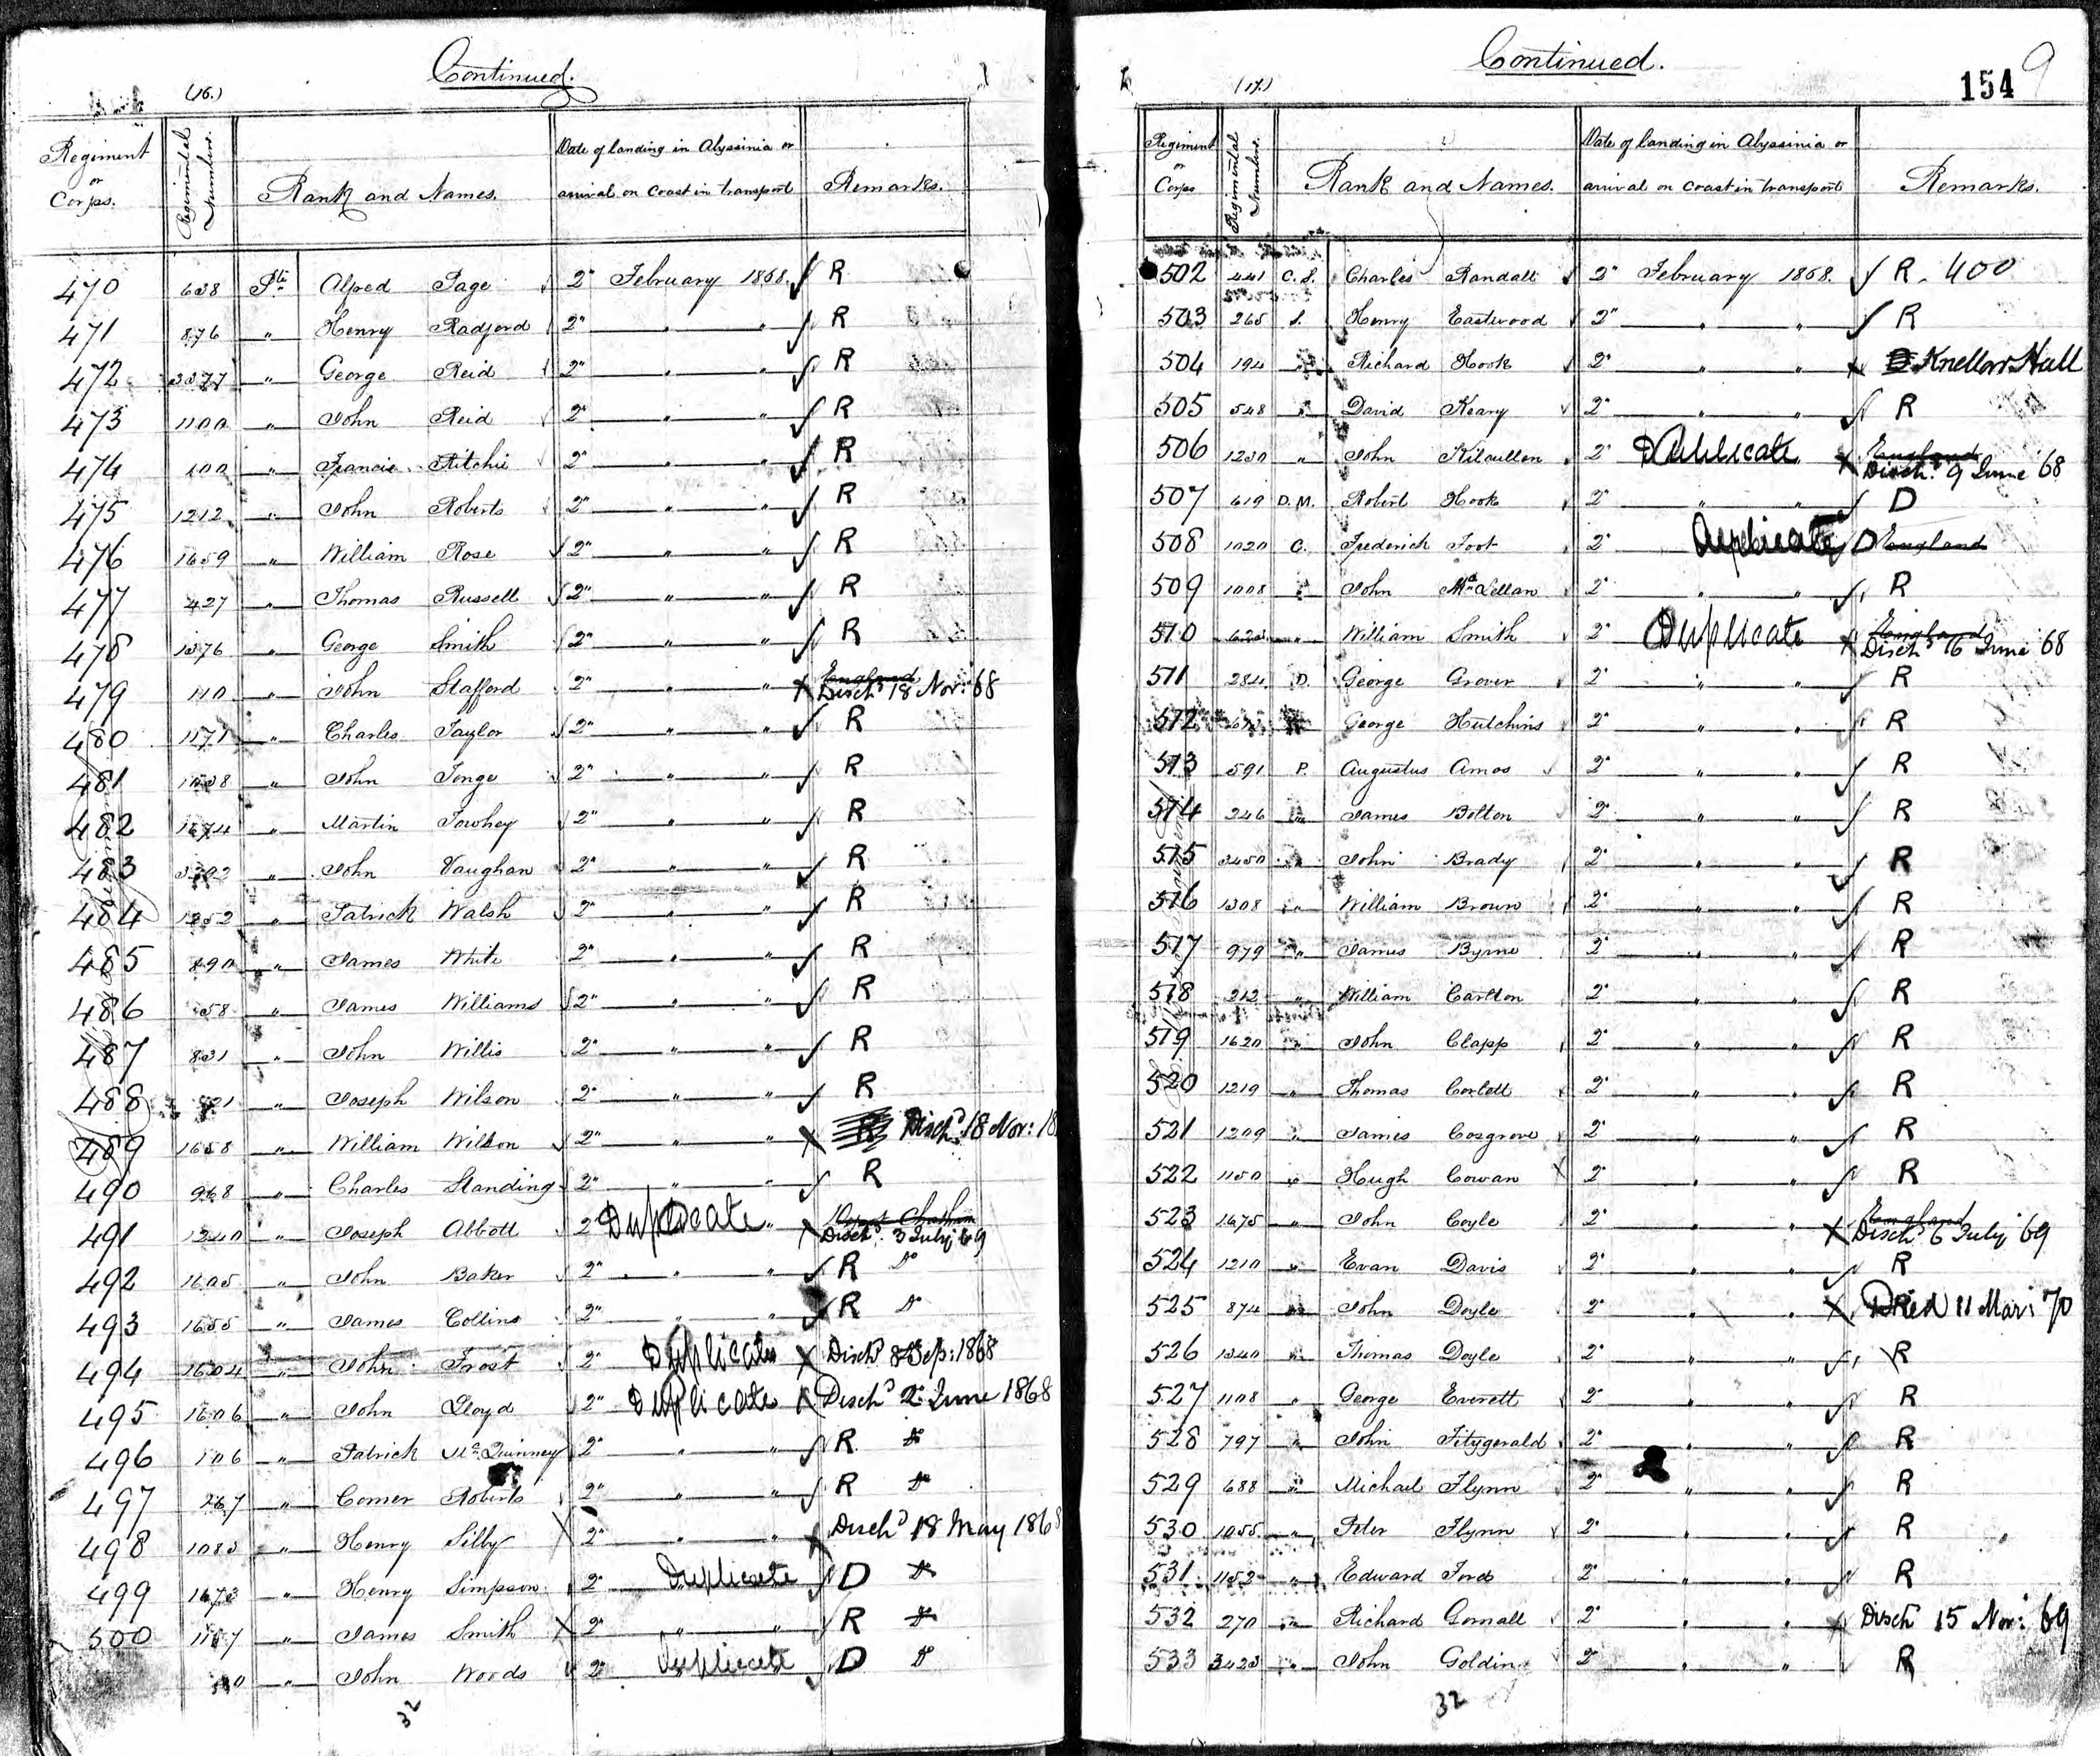 Continued.
(16.)
Regiment or Corps. Regimental Numbers. Rank and Names. Date of landing in Abyssinia or arrival on coast in transport Remarks.
470 638 Pte Alfred Page 2" February 1868. R
471 876 " Henry Radford 2" " " R
472 3377 " George Reid 2" " " R
473 1100 " John Reid 2" " " R
474 100 " Francis Ritchie 2" " " R
475 1212 " John Roberts 2" " " R
476 1659 " William Rose 2" " " R
477 427 " Thomas Russell 2" " " R
478 1376 " George Smith 2" " " R
479 110 " John Stafford 2" " " X England Disch.d 18 Nov: 68
480 1171 " Charles Taylor 2" " " R
481 1038 " John Tonge 2" " " R
482 1674 " Martin Towhey 2" " " R
483 " John Vaughan 2" " " R
484 1252 " Patrick Walsh 2" " " R
485 890 " James White 2" " " R
486 58 " James Williams 2" " " R
487 831 " John Willis 2" " " R
488 " Joseph Wilson 2" " " R
489 1658 " William Wilson 2" " " X R Disch.d 18 Nov: 18
490 968 " Charles Standing 2" " " R
491 1240 " Joseph Abbott 2" Duplicate " X Depot Chatham Disch.d 3 July 69
492 1605 " John Baker 2" " " R Do
493 1655 " James Collins 2" " " R Do
494 1604 " John Frost 2" Duplicate X Disch.d 8 Sep: 1868
495 1606 " John Lloyd 2" Duplicate X Disch.d 2 June 1868
496 106 " Patrick McQuinney 2" " " R Do
497 267 " Comer Roberts 2" " " R Do
498 1083 " Henry Silby 2" " " X Disch.d 18 May 1868
499 1673 " Henry Simpson 2" Duplicate D Do
500 1167 " James Smith 2" " " R Do
" John Woods 2" Duplicate D Do
32
Continued.
(17.)
154 9
Regiment or Corps Regimental Numbers. Rank and Names. Date of landing in Abyssinia or arrival on coast in transport Remarks.
502 441 C.S. Charles Randall 2" February 1868. R. 400
503 265 S. Henry Eastwood 2" " " R
504 194 " Richard Hook 2" " " X Knellor Hall
505 548 " David Keary 2" " " R
506 1230 " John Kilcullen 2" Duplicate " X England Disch.d 9 June 68
507 619 D.M. Robert Hook 2" " " D
508 1020 C. Frederick Foot 2" Duplicate D England
509 1008 " John McLellan 2" " " R
510 623 " William Smith 2" Duplicate X England Disch.d 16 June 68
511 284 D. George Grover 2" " " R
512 George Hutchins 2" " " R
513 591 P. Augustus Amos 2" " " R
514 246 " James Bolton 2" " " R
515 3450 " John Brady 2" " " R
516 1308 " William Brown 2" " " R
517 979 " James Byrne 2" " " R
518 212 " William Carlton 2" " " R
519 1620 " John Clapp 2" " " R
520 1219 " Thomas Corlett 2" " " R
521 1209 " James Cosgrove 2" " " R
522 1150 " Hugh Cowan 2" " " R
523 1675 " John Coyle 2" " " X England Disch.d 6 July 69
524 1210 " Evan Davis 2" " " R
525 874 " John Doyle 2" " " X Died 11 Mar: 70
526 1340 " Thomas Doyle 2" " " R
527 1108 " George Everett 2" " " R
528 797 " John Fitzgerald 2" " " R
529 688 " Michael Flynn 2" " " R
530 1055 " Peter Flynn 2" " " R
531 1152 " Edward Ford 2" " " R
532 270 " Richard Gornall 2" " " X Disch.d 15 Nov: 69
533 3423 " John Golding 2" " " R
32